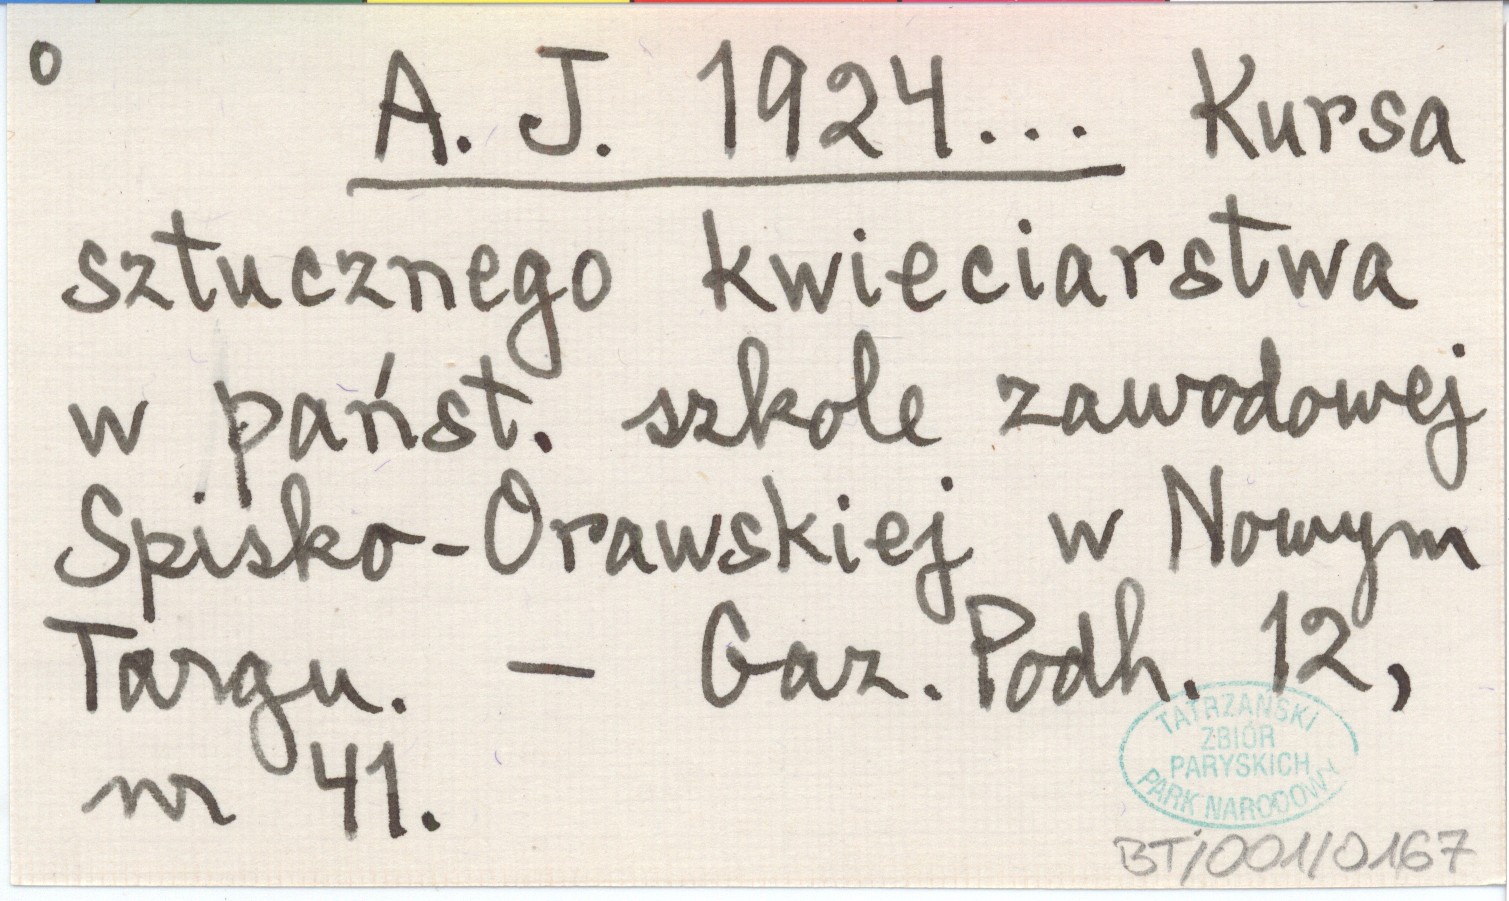 o A. J. 1924... Kursa
sztucznego kwieciarstwa
w państ. szkole zawodowej
Spisko-Orawskiej w Nowym
Targu. – Gaz. Podh. 12,
nr 41.
TATRZAŃSKI
ZBIÓR
PARYSKICH
PARK NARODOWY
BT/001/0167